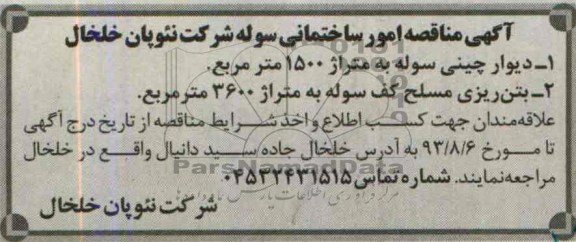 آگهی مناقصه امور ساختمانی سوله شرکت نئوپان خلخال
۱ـ دیوار چینی سوله به متراژ ۱۵۰۰ متر مربع.
۲ـ بتن‌ریزی مسلح کف سوله به متراژ ۳۶۰۰ مترمربع.
علاقه‌مندان جهت کسب اطلاع و اخذ شرایط مناقصه از تاریخ درج آگهی
تا مورخ ۹۳/۸/۶ به آدرس خلخال جاده سید دانیال واقع در خلخال
مراجعه‌نمایند. شماره تماس ۰۴۵۳۲۴۳۱۵۱۵
شرکت نئوپان خلخال
ParsNamadData